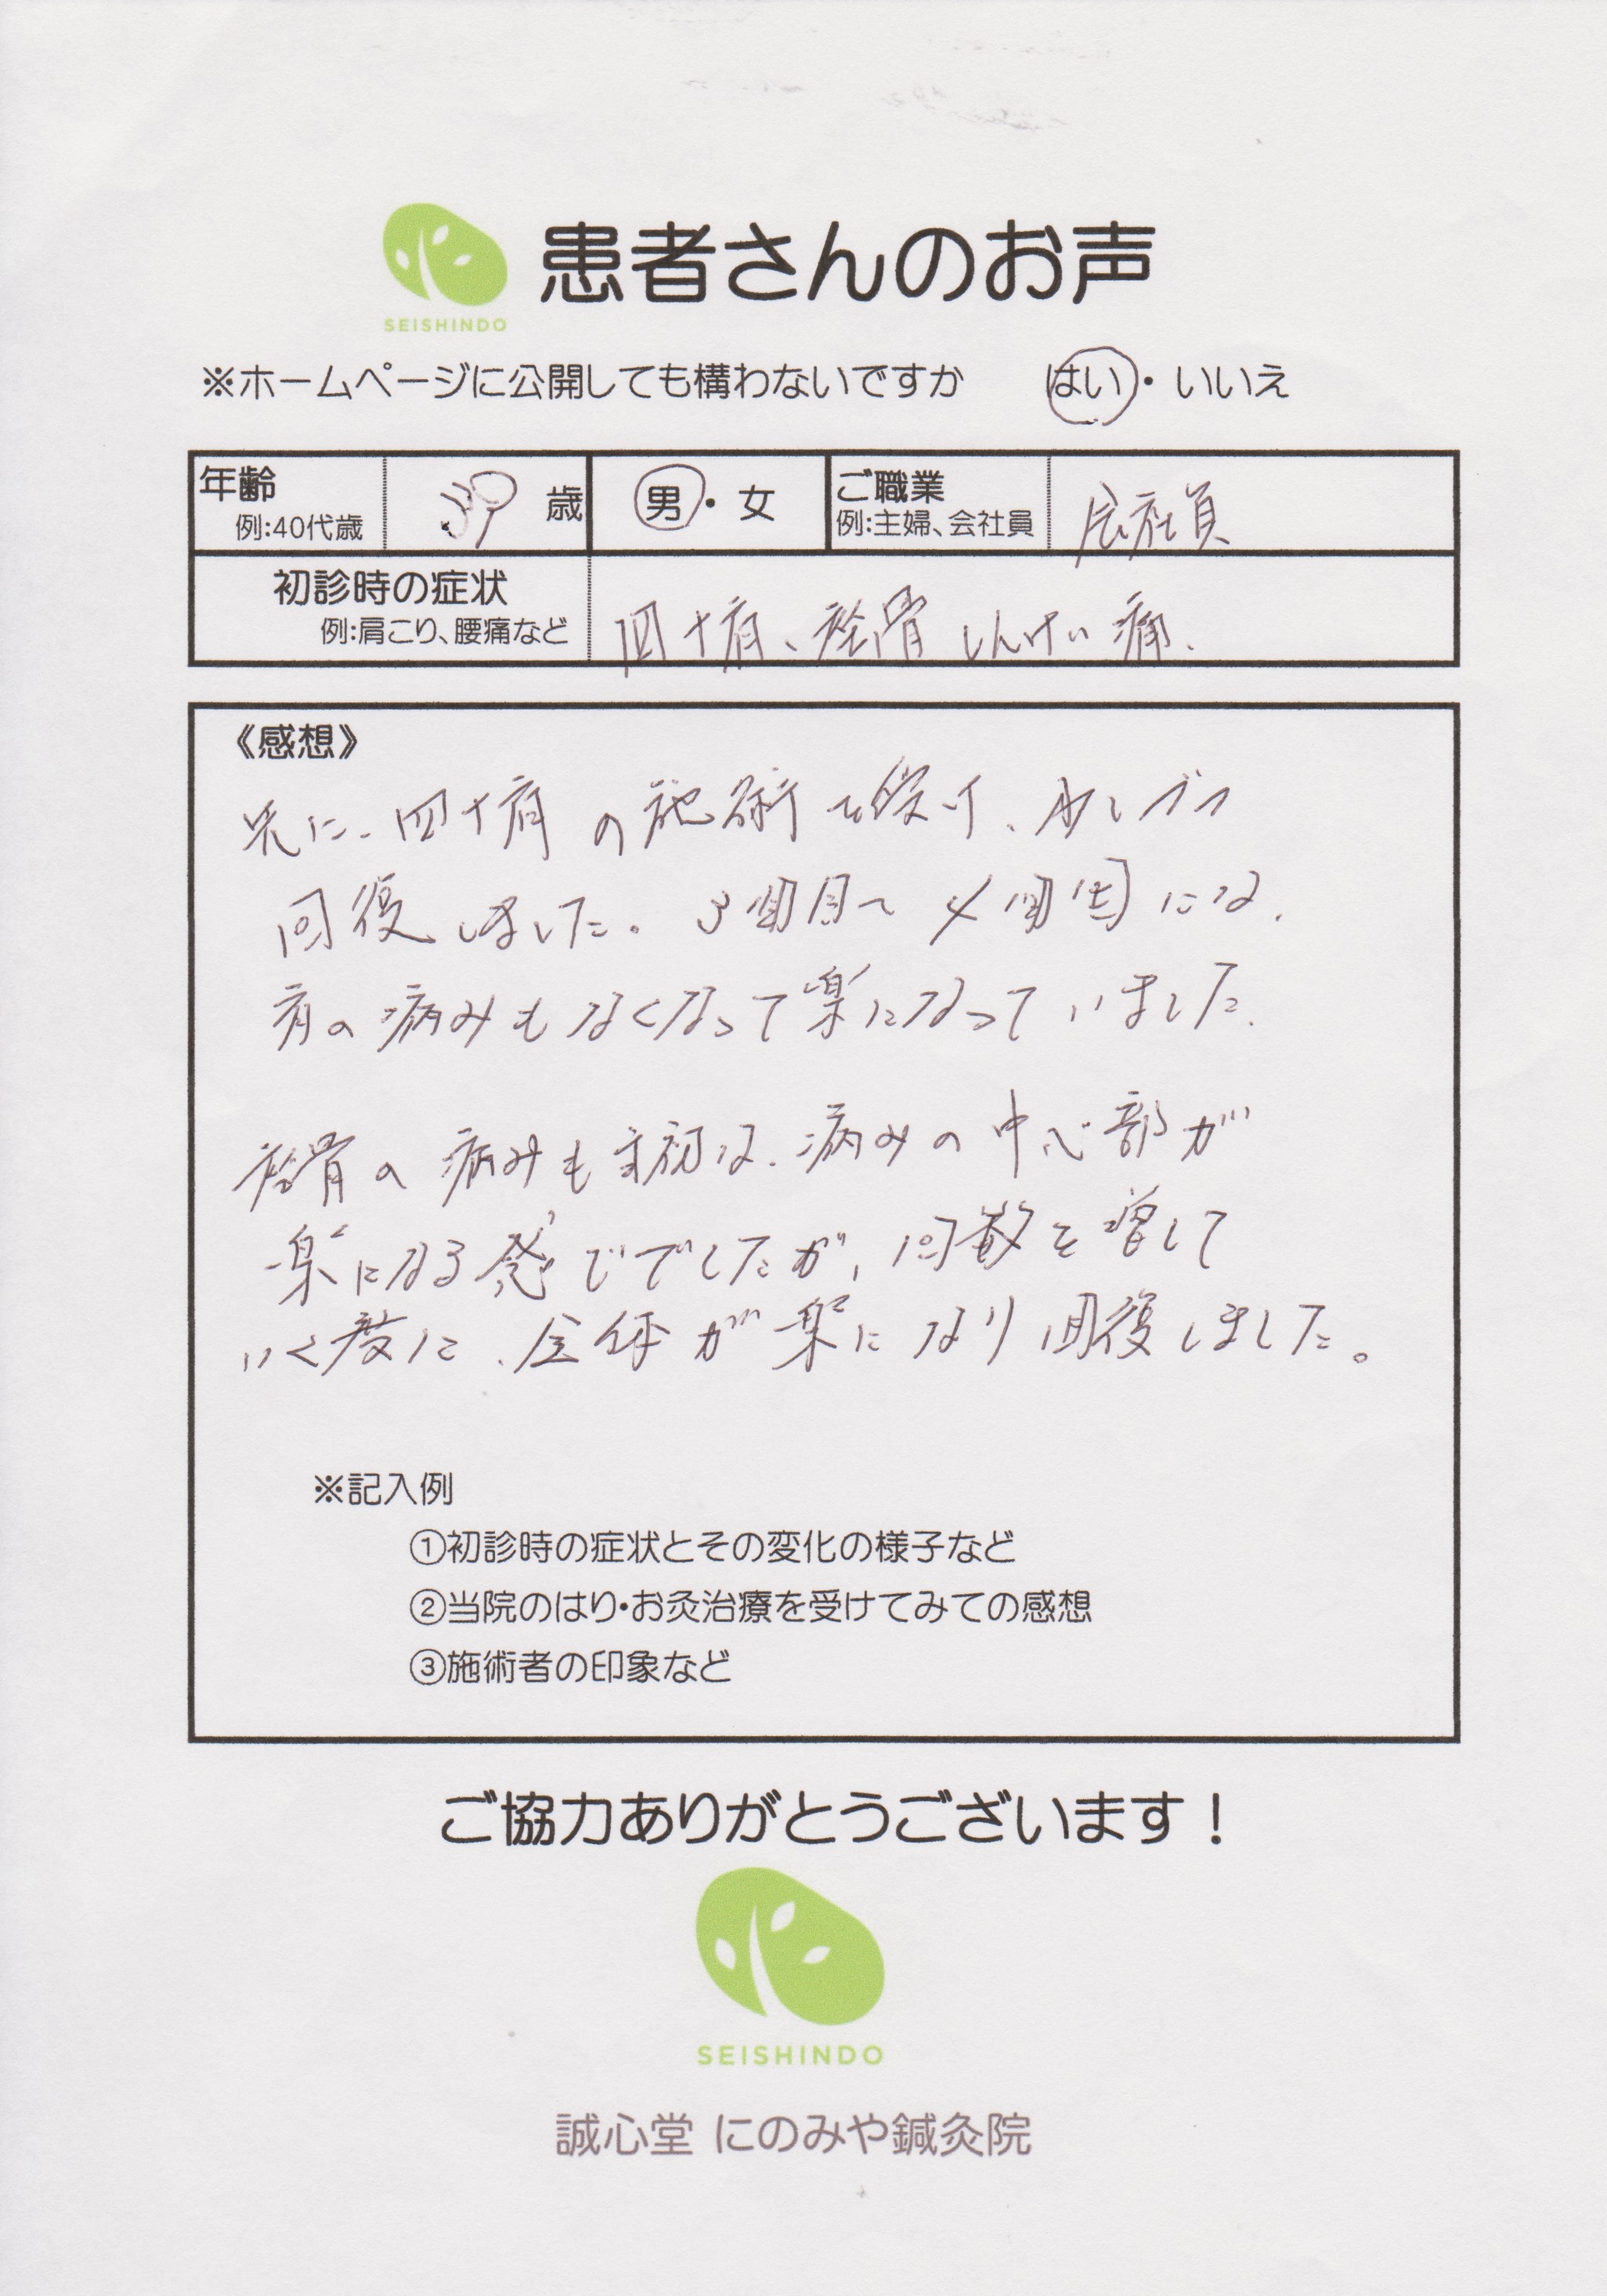 患者さんのお声
SEISHINDO
※ホームページに公開しても構わないですか はい・いいえ
年齢 39 歳 男・女 ご職業 会社員
例:40代歳 例:主婦、会社員
初診時の症状
例:肩こり、腰痛など
四十肩、座骨しんけい痛、
《感想》
先に、四十肩の施術を受け、少しづつ
回復しました。3回目〜4回目には、
肩の痛みもなくなって楽になっていました。
座骨の痛みも初は、痛みの中心部が
楽になる感じでしたが、回数を増して
いく度に、全体が楽になり回復しました。
※記入例
①初診時の症状とその変化の様子など
②当院のはり・お灸治療を受けてみての感想
③施術者の印象など
ご協力ありがとうございます！
SEISHINDO
誠心堂 にのみや鍼灸院